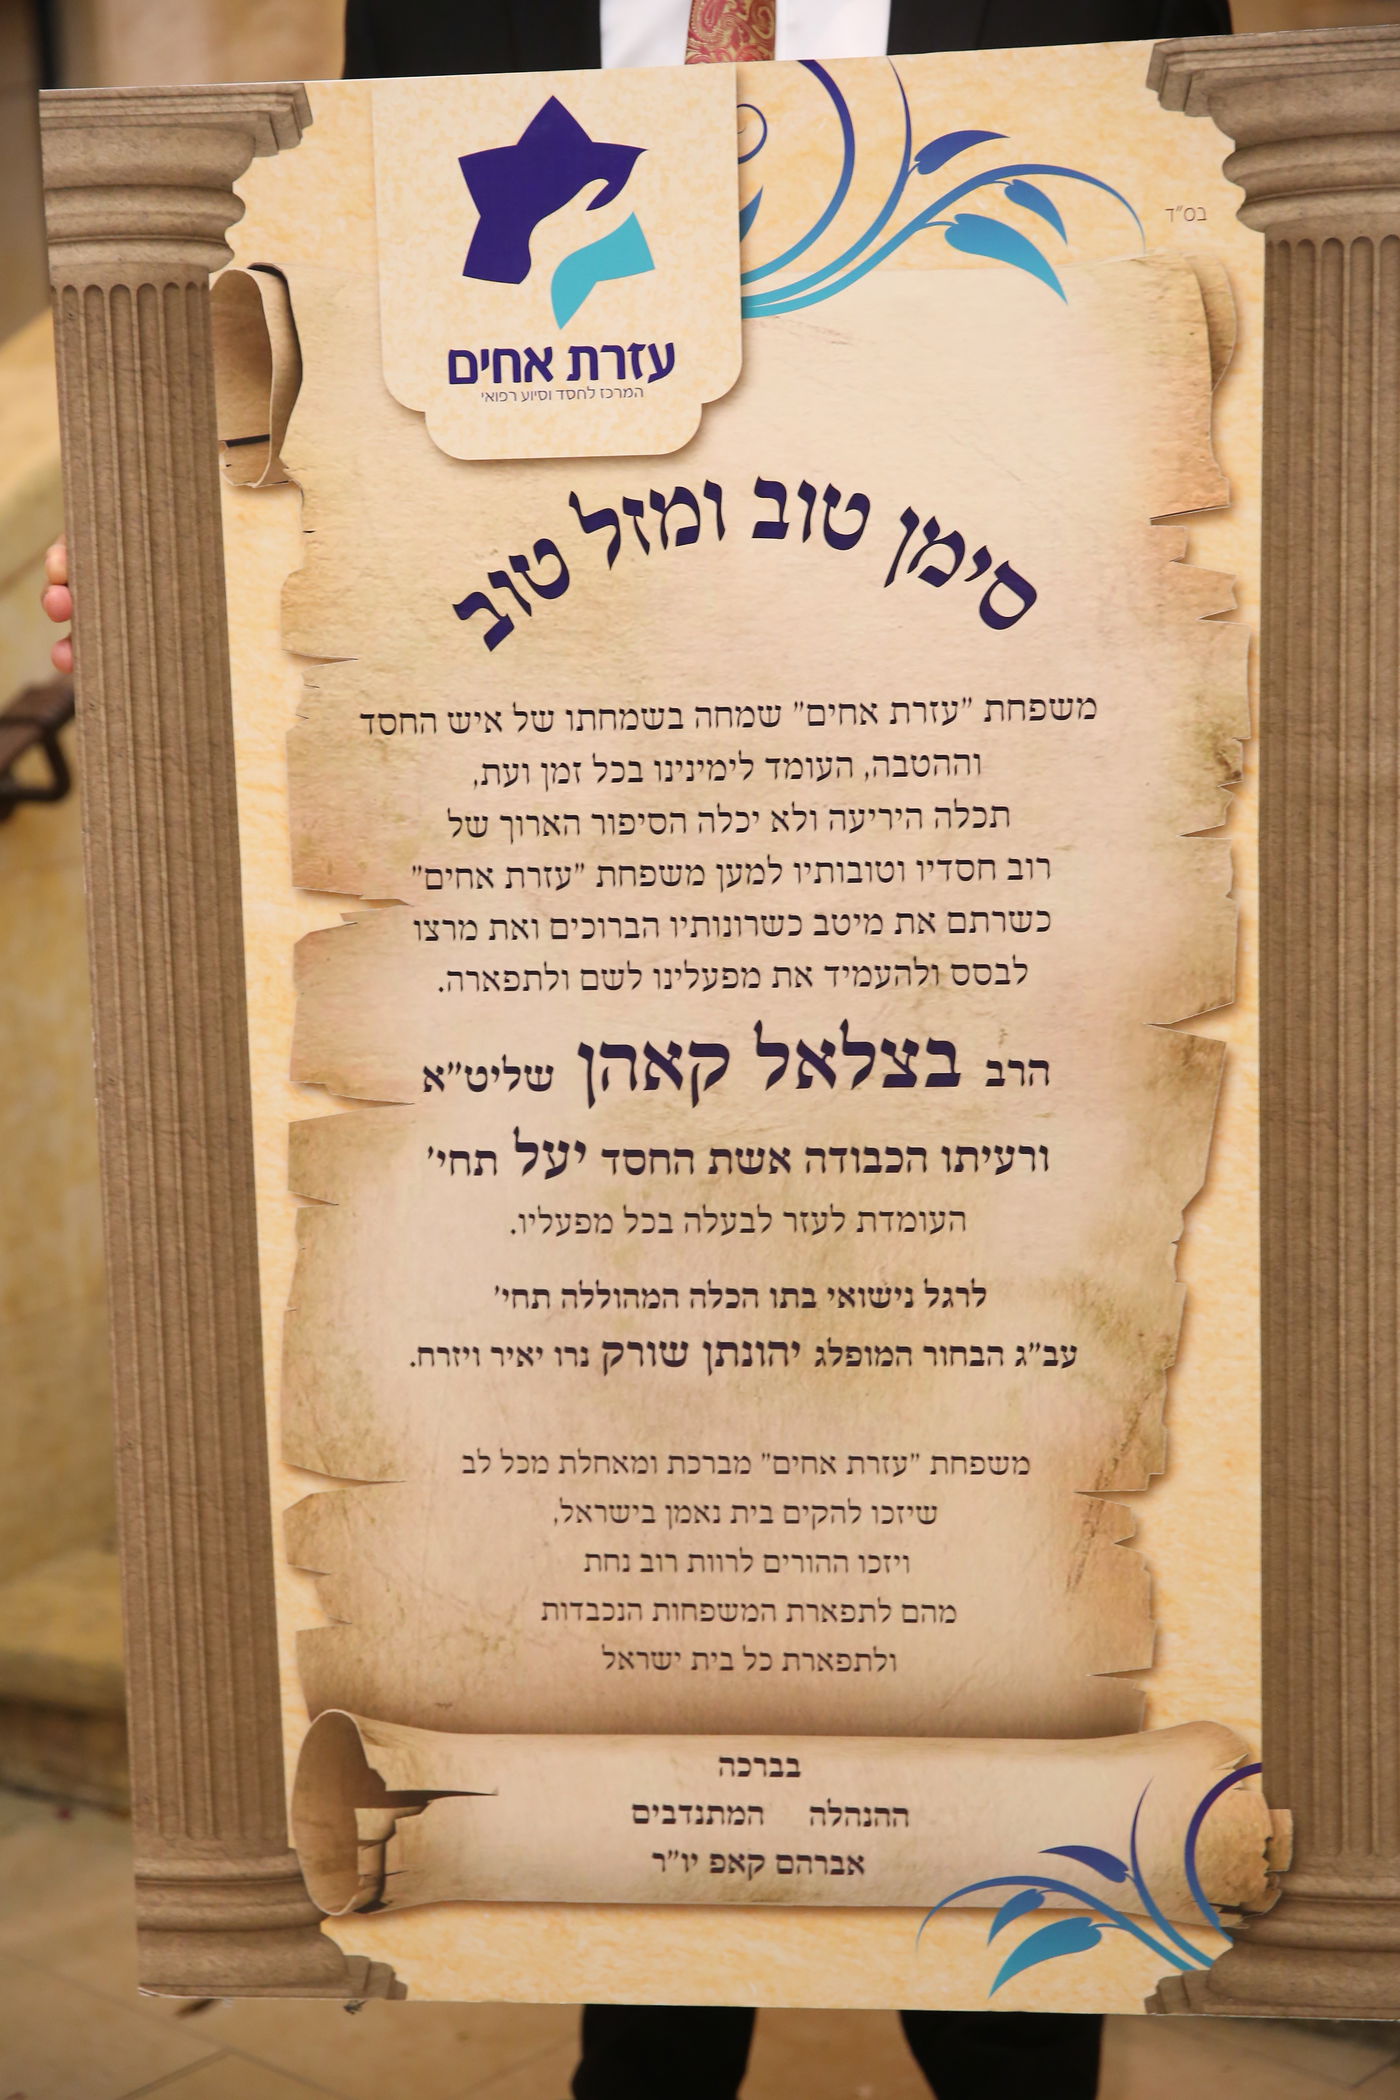 בס״ד
עזרת אחים
המרכז לחסד וסיוע רפואי
סימן טוב ומזל טוב
משפחת ״עזרת אחים״ שמחה בשמחתו של איש החסד
וההטבה, העומד לימינינו בכל זמן ועת,
תכלה היריעה ולא יכלה הסיפור הארוך של
רוב חסדיו וטובותיו למען משפחת ״עזרת אחים״
כשרתם את מיטב כשרונותיו הברוכים ואת מרצו
לבסס ולהעמיד את מפעלינו לשם ולתפארה.
הרב בצלאל קאהן שליט״א
ורעיתו הכבודה אשת החסד יעל תחי׳
העומדת לעזר לבעלה בכל מפעליו.
לרגל נישואי בתו הכלה המהוללה תחי׳
עב״ג הבחור המופלג יהונתן שורק נרו יאיר ויזרח.
משפחת ״עזרת אחים״ מברכת ומאחלת מכל לב
שיזכו להקים בית נאמן בישראל,
ויזכו ההורים לרוות רוב נחת
מהם לתפארת המשפחות הנכבדות
ולתפארת כל בית ישראל
בברכה
ההנהלה המתנדבים
אברהם קאפ יו״ר